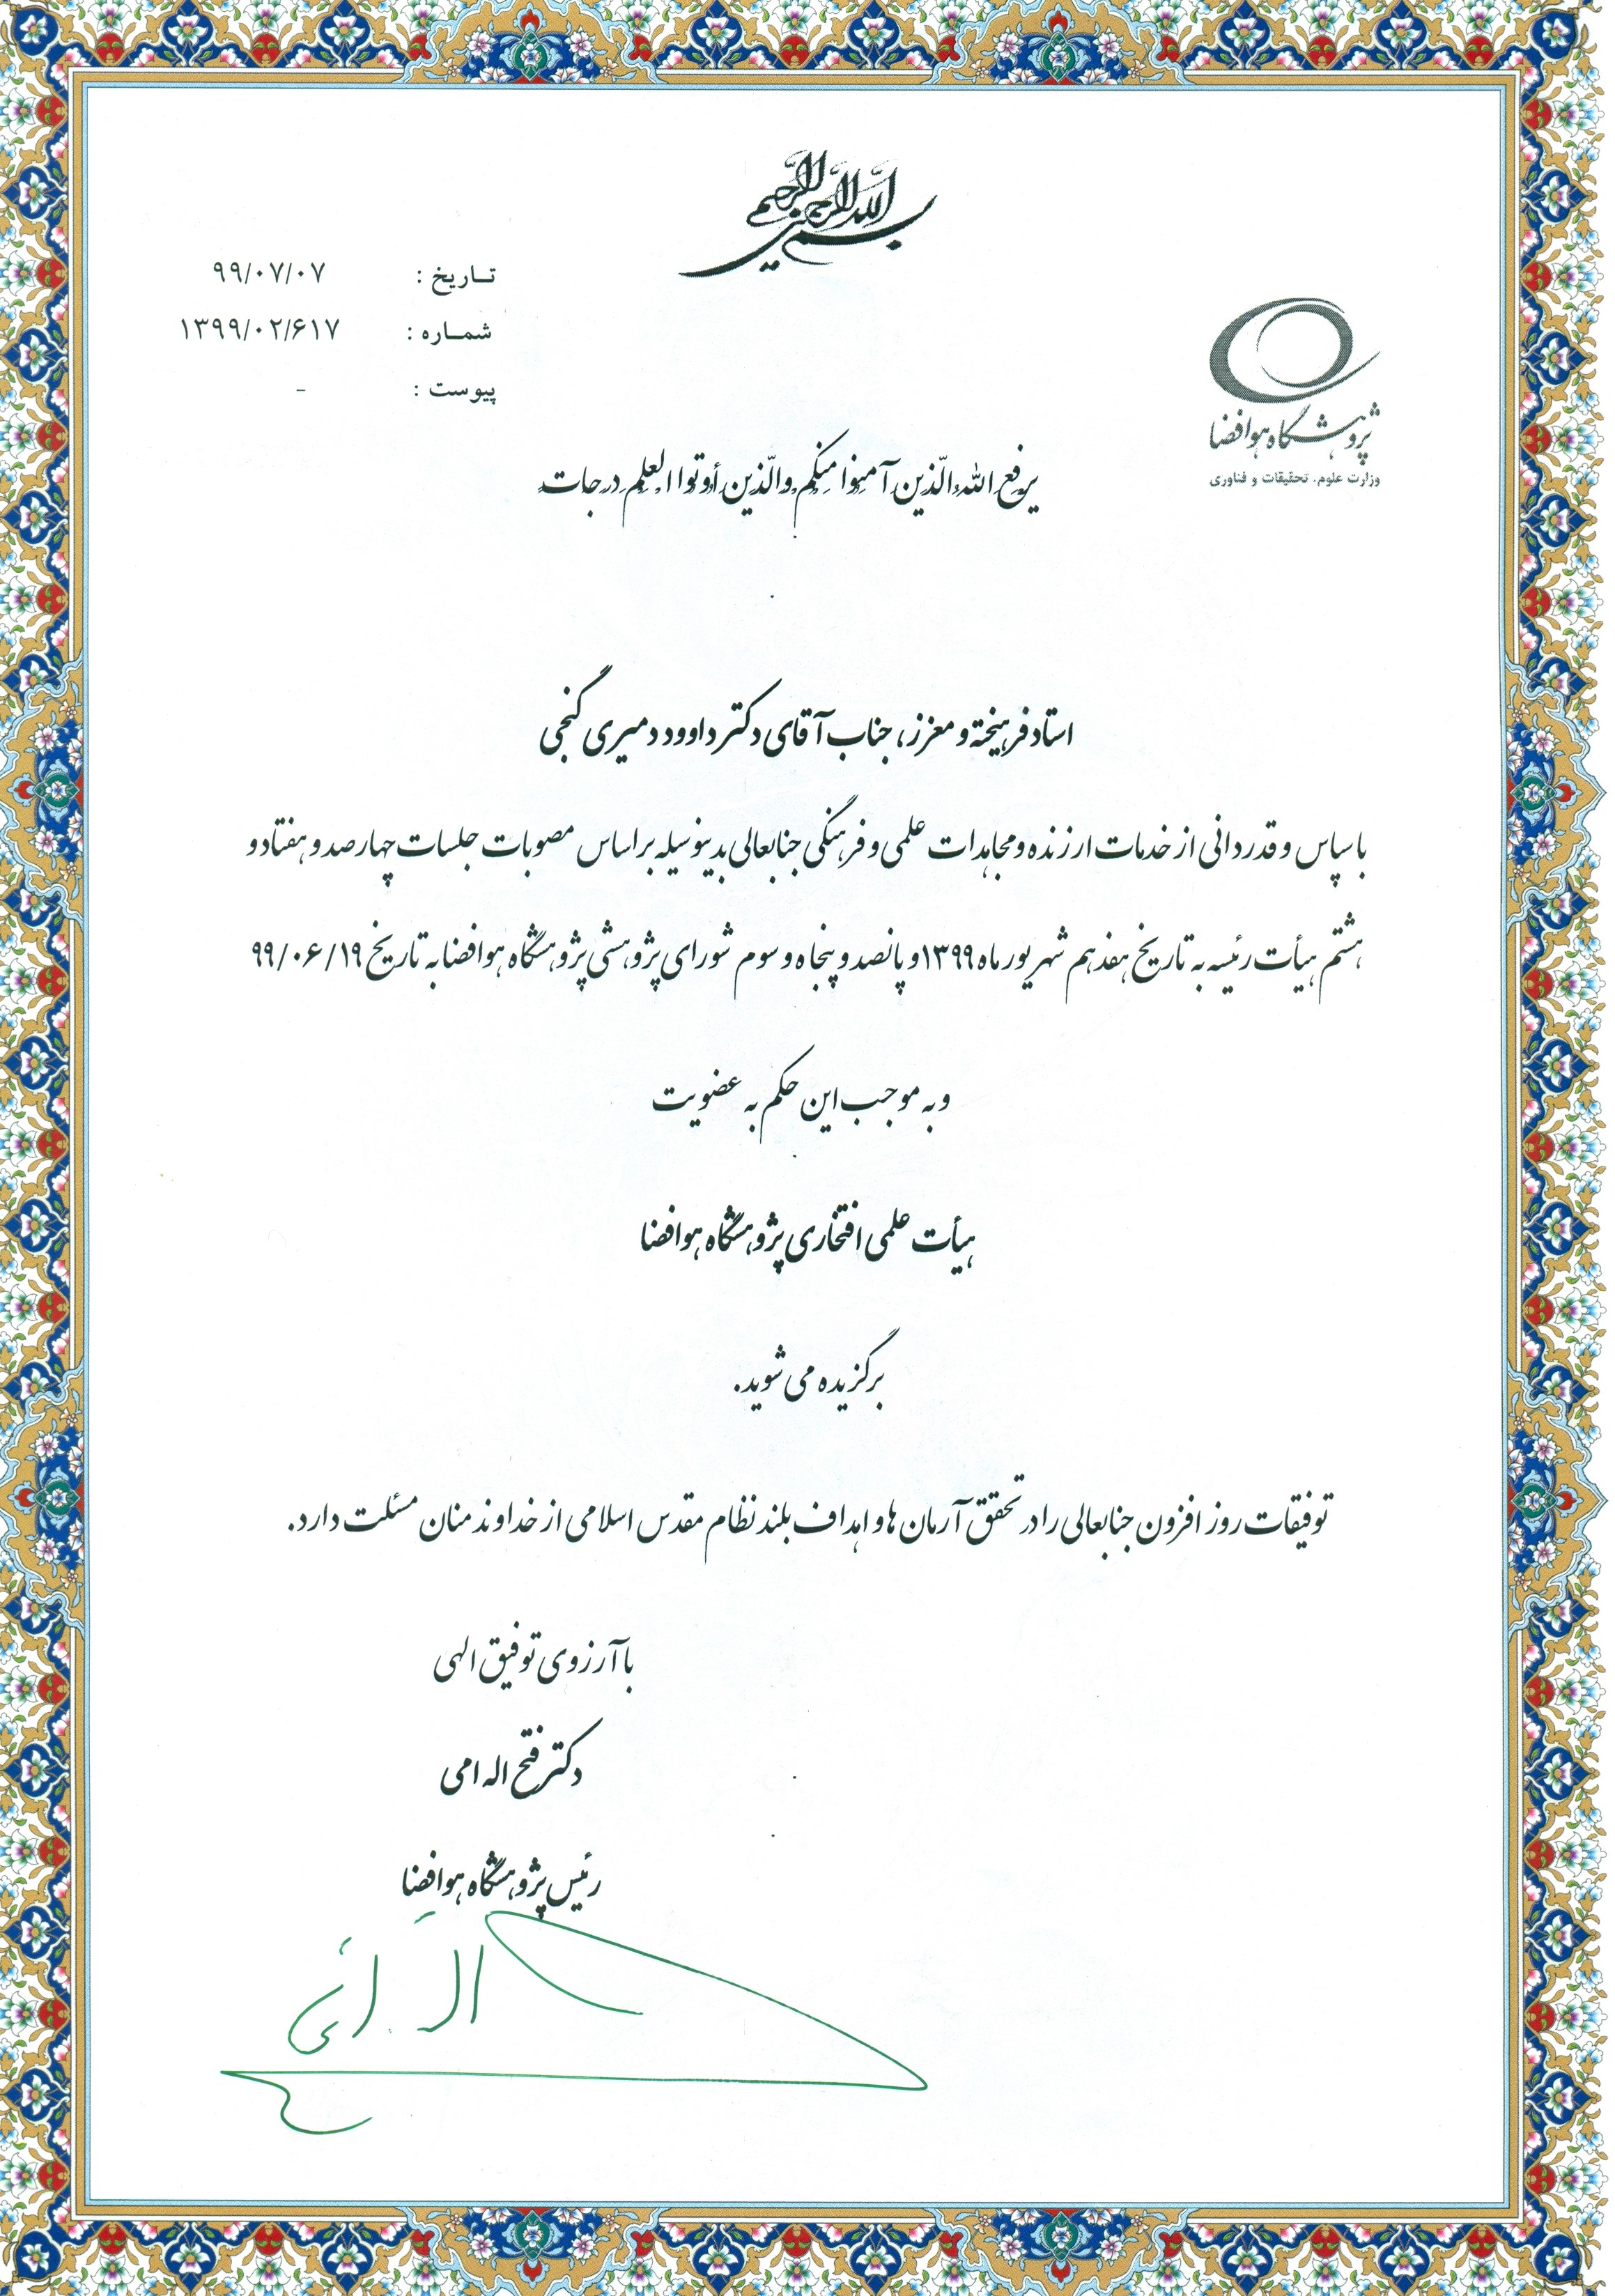 بسم الله الرحمن الرحیم
تاریخ : ۹۹/۰۷/۰۷
شماره : ۱۳۹۹/۰۲/۶۱۷
پیوست : -
پژوهشگاه هوافضا
وزارت علوم، تحقیقات و فناوری
یرفع الله الّذین آمنوا منکم والّذین أوتوا العلم درجات
استاد فرهیخته و معزز، جناب آقای دکتر داوود دمیری گنجی
با سپاس و قدردانی از خدمات ارزنده و مجاهدات علمی و فرهنگی جنابعالی بدینوسیله بر اساس مصوبات جلسات چهارصد و هفتاد و
هشتم هیأت رئیسه به تاریخ هفدهم شهریور ماه ۱۳۹۹ و پانصد و پنجاه و سوم شورای پژوهشی پژوهشگاه هوافضا به تاریخ ۹۹/۰۶/۱۹
و به موجب این حکم به عضویت
هیأت علمی افتخاری پژوهشگاه هوافضا
برگزیده می شوید.
توفیقات روز افزون جنابعالی را در تحقق آرمان ها و اهداف بلند نظام مقدس اسلامی از خداوند منان مسئلت دارد.
با آرزوی توفیق الهی
دکتر فتح اله امی
رئیس پژوهشگاه هوافضا